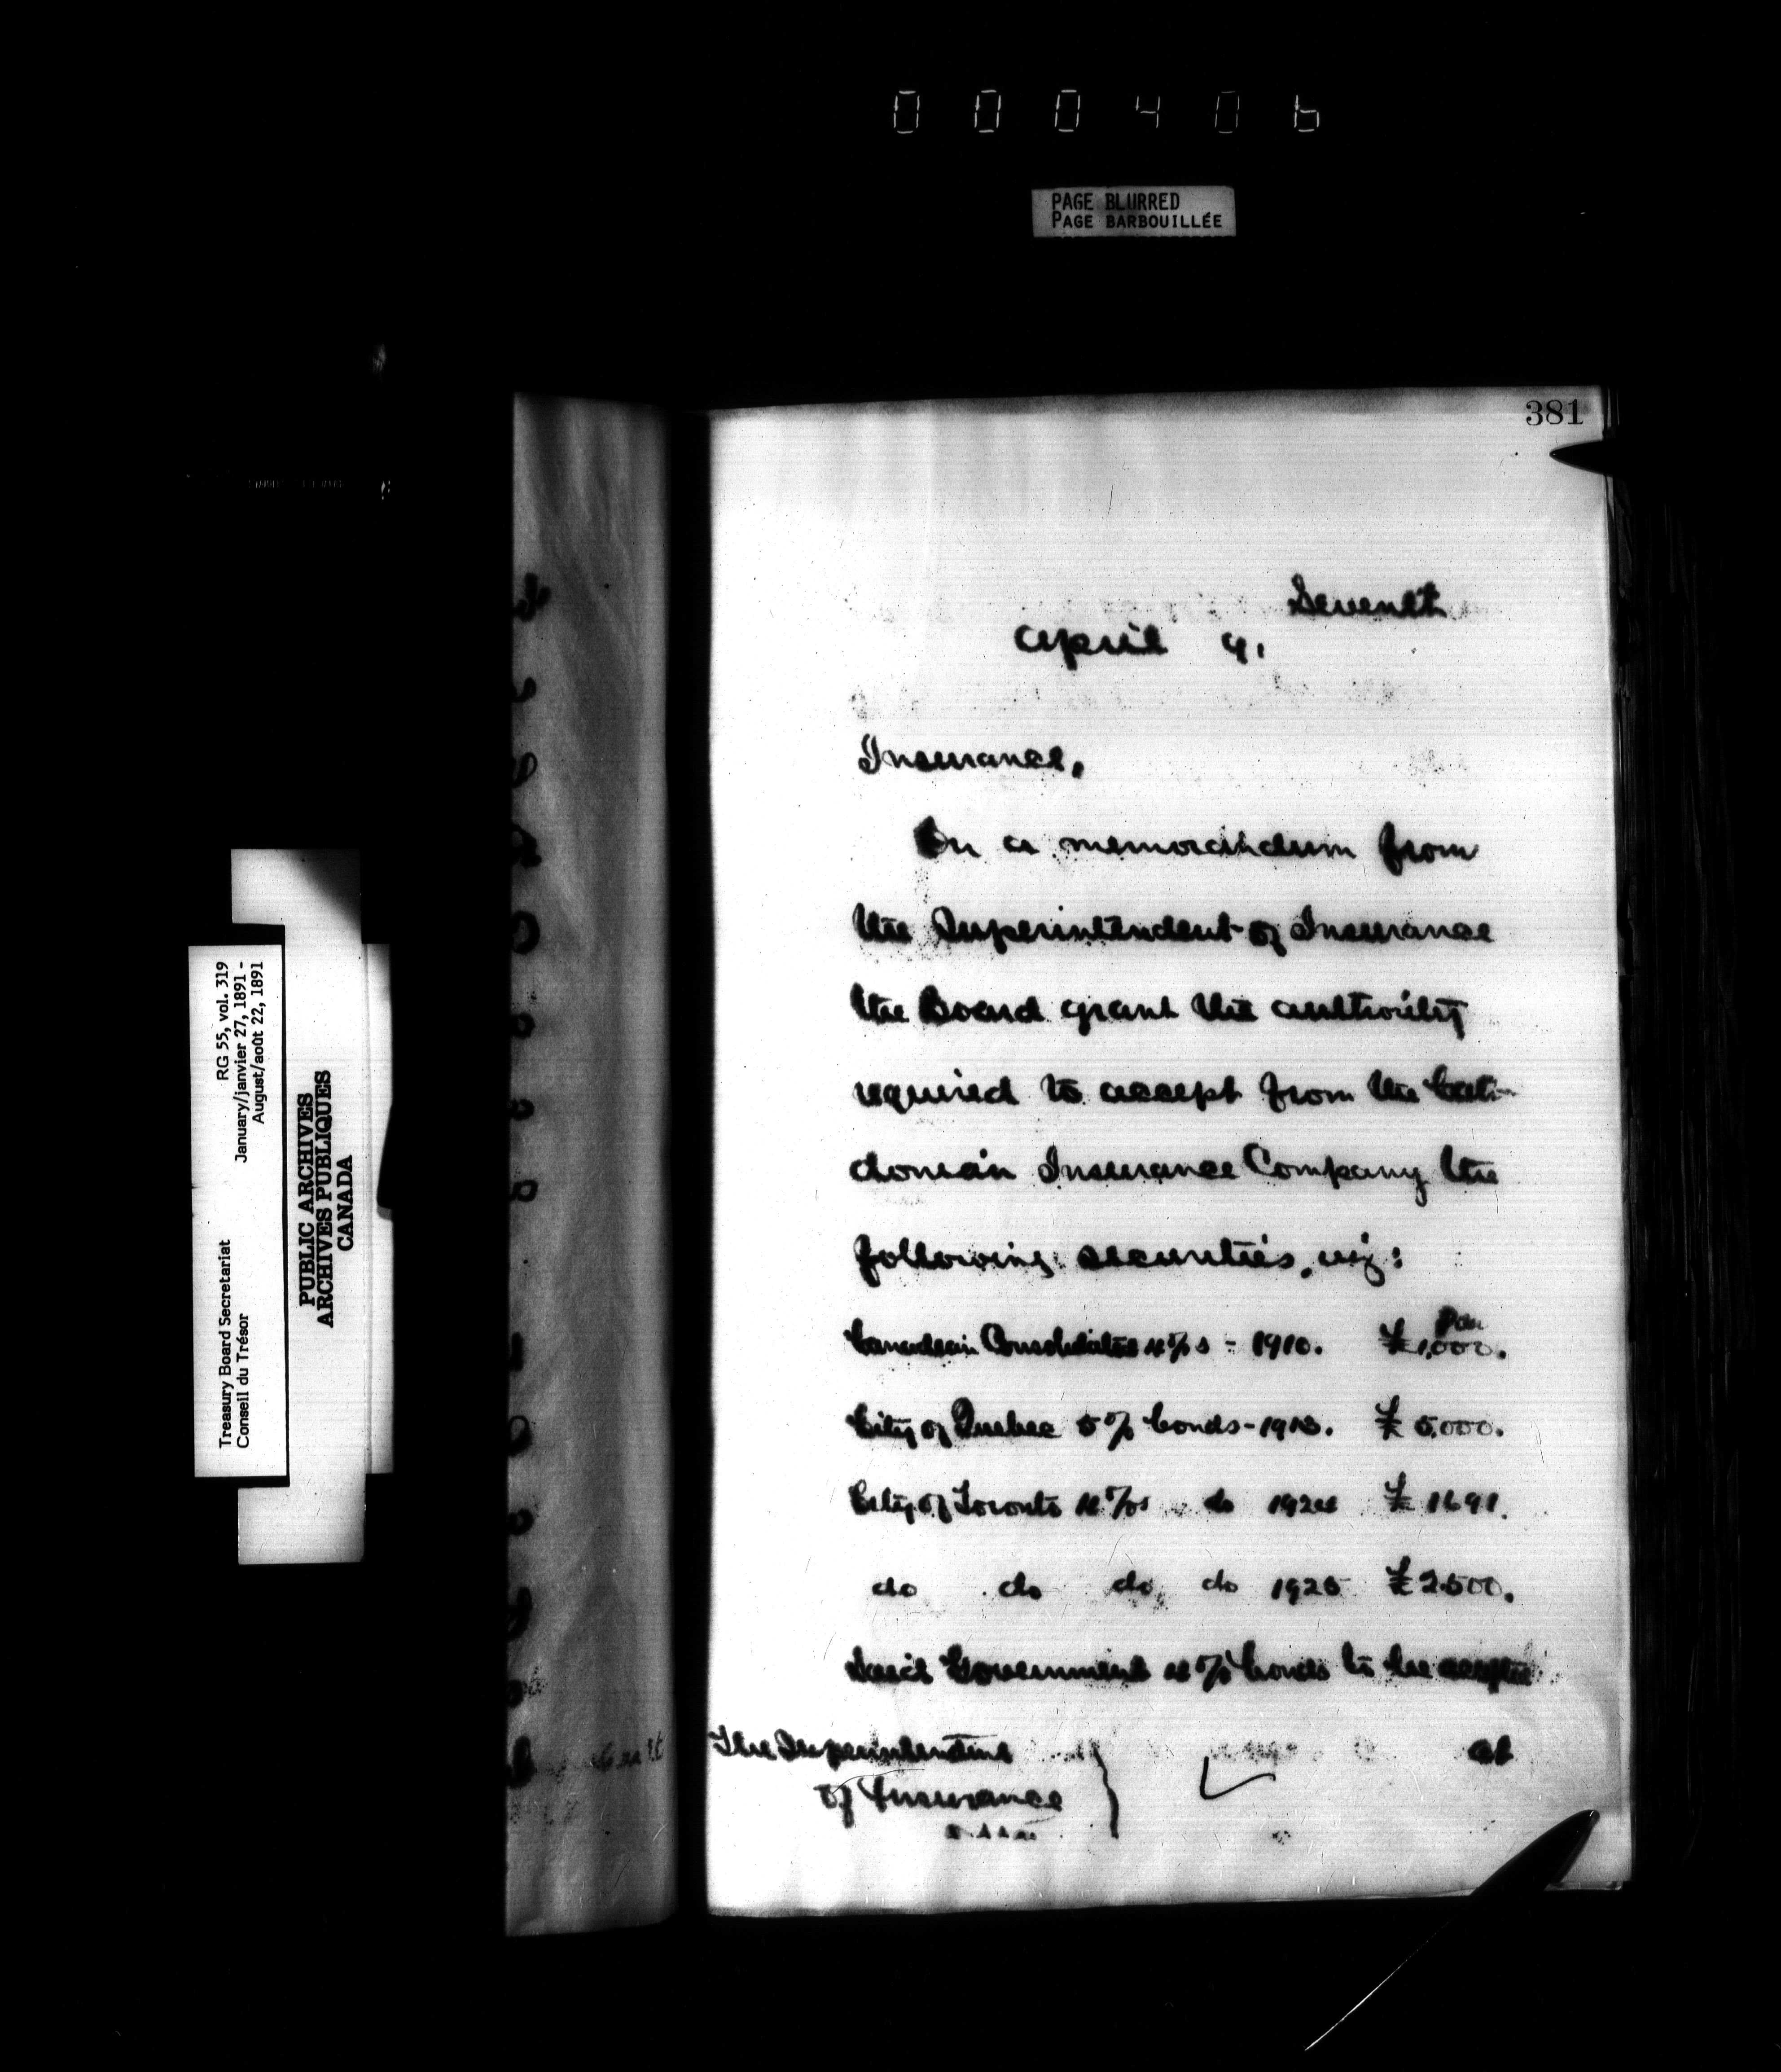 000406
PAGE BLURRED
PAGE BARBOUILLÉE
Treasury Board Secretariat RG 55, vol. 319
Conseil du Trésor January/janvier 27, 1891 -
August/août 22, 1891
PUBLIC ARCHIVES
ARCHIVES PUBLIQUES
CANADA
381
Seventh
April 9,
Insurance,
On a memorandum from
the Superintendent of Insurance
the Board grant the authority
required to accept from the Cale-
donian Insurance Company the
following securities, viz:
Par
Canadian Consolidated 4%s - 1910. £1,000.
City of Quebec 5% bonds - 1913. £5,000.
City of Toronto 4%s do 1922 £1691.
do do do do 1925 £2,500.
Said Government 4% bonds to be accepted
The Superintendent at
of Insurance